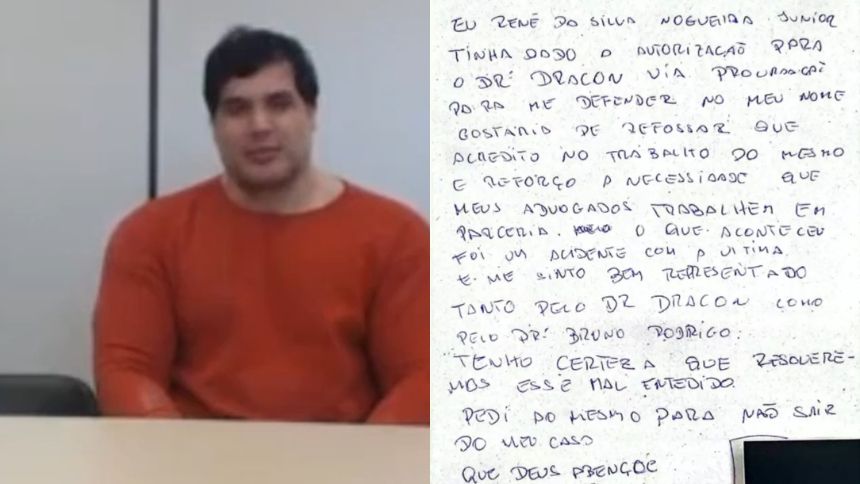 EU RENÊ DA SILVA NOGUEIRA JUNIOR
TINHA DADO A AUTORIZAÇÃO PARA
O DR: DRACON VIA PROCURAÇAÕ
PARA ME DEFENDER NO MEU NOME
GOSTARIA DE REFOSSAR QUE
ACREDITO NO TRABALHO DO MESMO
E REFORÇO A NECESSIDADE QUE
MEUS ADVOGADOS TRABALHEM EM
PARCERIA. O QUE ACONTECEU
FOI UM ACIDENTE COM A VITIMA
E ME SINTO BEM REPRESENTADO
TANTO PELO DR DRACON COMO
PELO DR: BRUNO RODRIGO.
TENHO CERTEZA QUE RESOLVERE-
MOS ESSE MAL ENTEDIDO
PEDI AO MESMO PARA NÃO SAIR
DO MEU CASO
QUE DEUS ABENÇOE